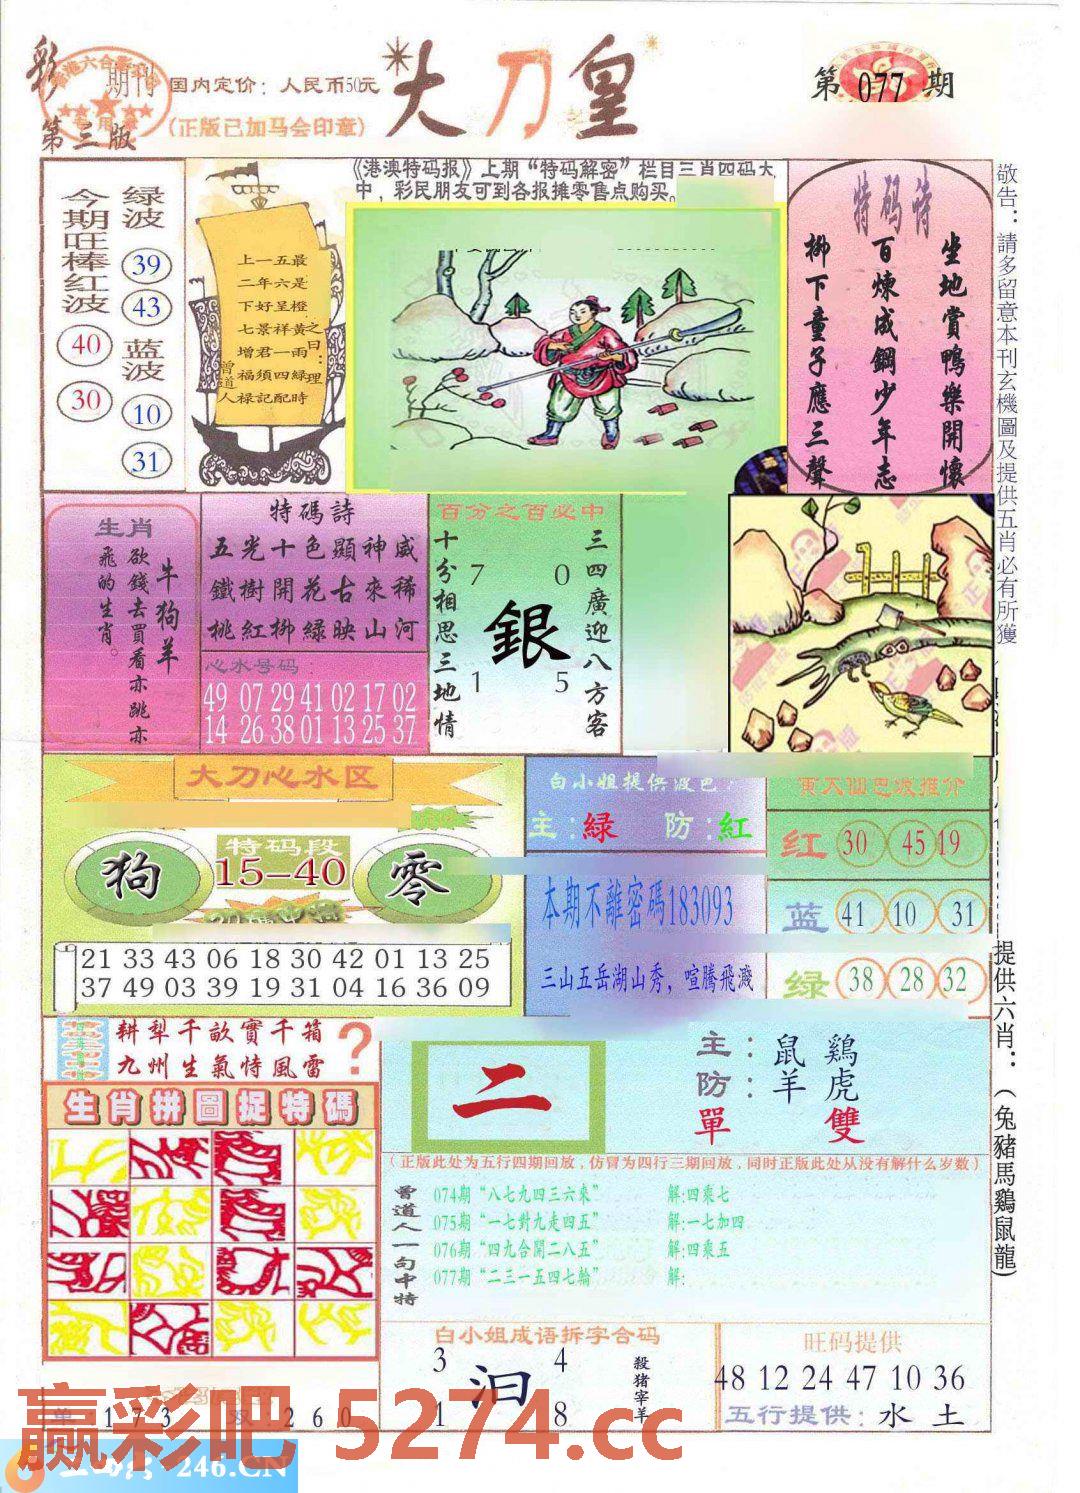 彩 期刊 国内定价：人民币50元
第三版 (正版已加马会印章)
大刀皇
第077期
《港澳特码报》上期“特码解密”栏目三肖四码大
中，彩民朋友可到各报摊零售点购买。
今期旺棒红波
40
30
绿波
39
43
蓝波
10
31
上一五最
二年六是
下好呈橙
七景祥黄
增君一雨
福須四緑
禄記配時
之日：理
曾道人
特码诗
坐地賞鴨樂開懷
百煉成鋼少年志
柳下童子應三聲
敬告：請多留意本刊玄機圖及提供五肖必有所獲
生肖
牛狗羊
欲錢去買看亦跳亦
飛的生肖。
特碼詩
五光十色顯神威
鐵樹開花古來稀
桃紅柳綠映山河
心水号码
49 07 29 41 02 17 02
14 26 38 01 13 25 37
百分之百必中
三四廣迎八方客
十分相思三地情
7 0
銀
1 5
大刀心水区
特码段
狗 15-40 零
21 33 43 06 18 30 42 01 13 25
37 49 03 39 19 31 04 16 36 09
白小姐提供波色
主:緑 防:紅
本期不離密碼183093
三山五岳湖山秀，喧騰飛濺
红 30 45 19
蓝 41 10 31
绿 38 28 32
提供六肖：(兔豬馬鷄鼠龍)
耕犁千畝實千箱
九州生氣恃風雷
?
生肖拼圖捉特碼
二
主：鼠 鷄
防：羊 虎
單 雙
(正版此处为五行四期回放，仿冒为四行三期回放，同时正版此处从没有解什么岁数)
曾道人一句中特
074期“八七九四三六來” 解:四乘七
075期“一七對九走四五” 解:一七加四
076期“四九合開二八五” 解:四乘五
077期“二三一五四七輪” 解:
白小姐成语拆字合码
3 4
汩
1 8
殺猪宰羊
旺码提供
48 12 24 47 10 36
五行提供：水 土
单:173 双:260
赢彩吧 5274.cc
246.CN